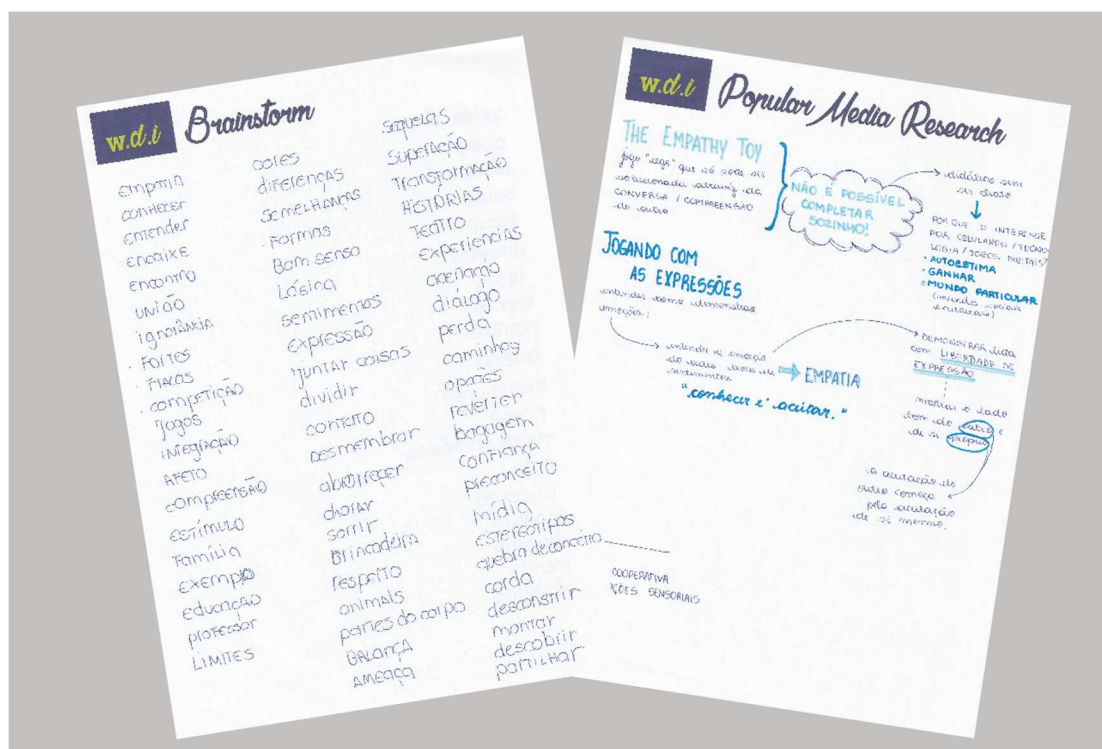 w.d.i Brainstorm
empatia
conhecer
entender
encaixe
encontro
união
ignorância
. fortes
. fracos
. competição
jogos
integração
afeto
compreensão
estímulo
família
exemplo
educação
professor
limites
cores
diferenças
semelhanças
. formas
Bom senso
Lógica
sentimentos
expressão
juntar coisas
dividir
contato
desmembrar
aborrecer
chorar
sorrir
Brincadeira
respeito
animais
partes do corpo
BALANÇA
AMEAÇA
sequelas
superação
transformação
HISTÓRIAS
TEATRO
experiencias
aceitação
dialogo
perda
caminhos
opções
reverter
bagagem
confiança
preconceito
mídia
estereótipos
quebra de conceito
corda
desconstrir
montar
descobrir
partilhar
w.d.i Popular Media Research
THE EMPATHY TOY
jogo "cego" que só pode ser
solucionado através da
CONVERSA / COMPREENSÃO
do outro
NÃO É POSSÍVEL
COMPLETAR
SOZINHO!
didático sem
ser chato
POR QUE O INTERESSE
POR CELULARES / TECNO-
LOGIA / JOGOS DIGITAIS?
• AUTOESTIMA
• GANHAR
• MUNDO PARTICULAR
JOGANDO COM
AS EXPRESSÕES
entender como demonstrar
emoções;
entender a emoção
do outro, troca de
sentimentos
EMPATIA
"conhecer é aceitar."
DEMONSTRAR
com LIBERDADE DE
EXPRESSÃO
mostrar o lado
bom do outro e
de si próprio
a aceitação do
outro começa
pela aceitação
de si mesmo.
COOPERATIVA
ÇÕES SENSORIAIS